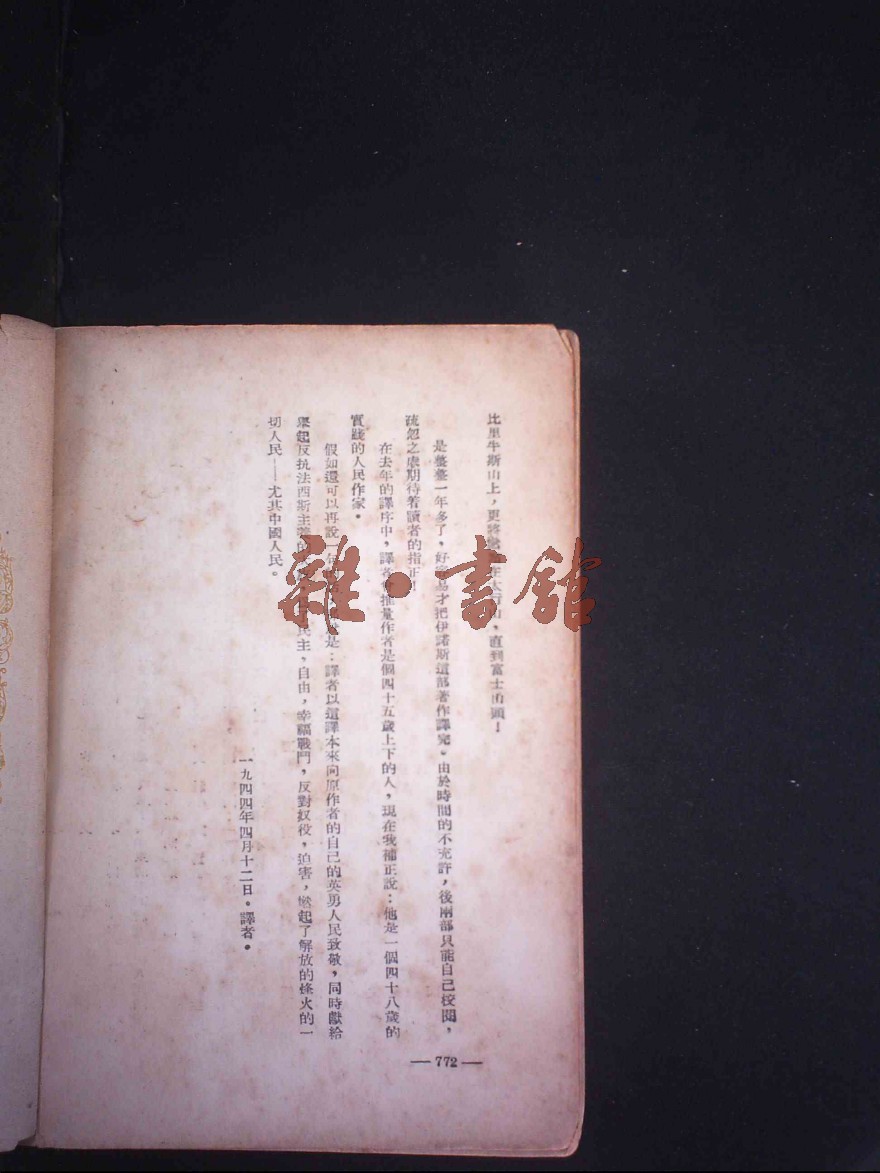 比里牛斯山上，更將　　在太行山，直到富士山頭！
是整整一年多了，好容易才把伊諾斯這部著作譯完。由於時間的不充許，後兩部只能自己校閱，
疏忽之處期待着讀者的指正
在去年的譯序中，譯者曾推量作者是個四十五歲上下的人，現在我補正說：他是一個四十八歲的
實踐的人民作家。
假如還可以再說一句　　　是：譯者以這譯本來向原作者的自己的英勇人民致敬，同時獻給
舉起反抗法西斯主義的　　　民主，自由，幸福戰鬥，反對奴役，迫害，燃起了解放的烽火的一
切人民——尤其中國人民。
一九四四年四月十二日。譯者。
— 772 —
雜·書館